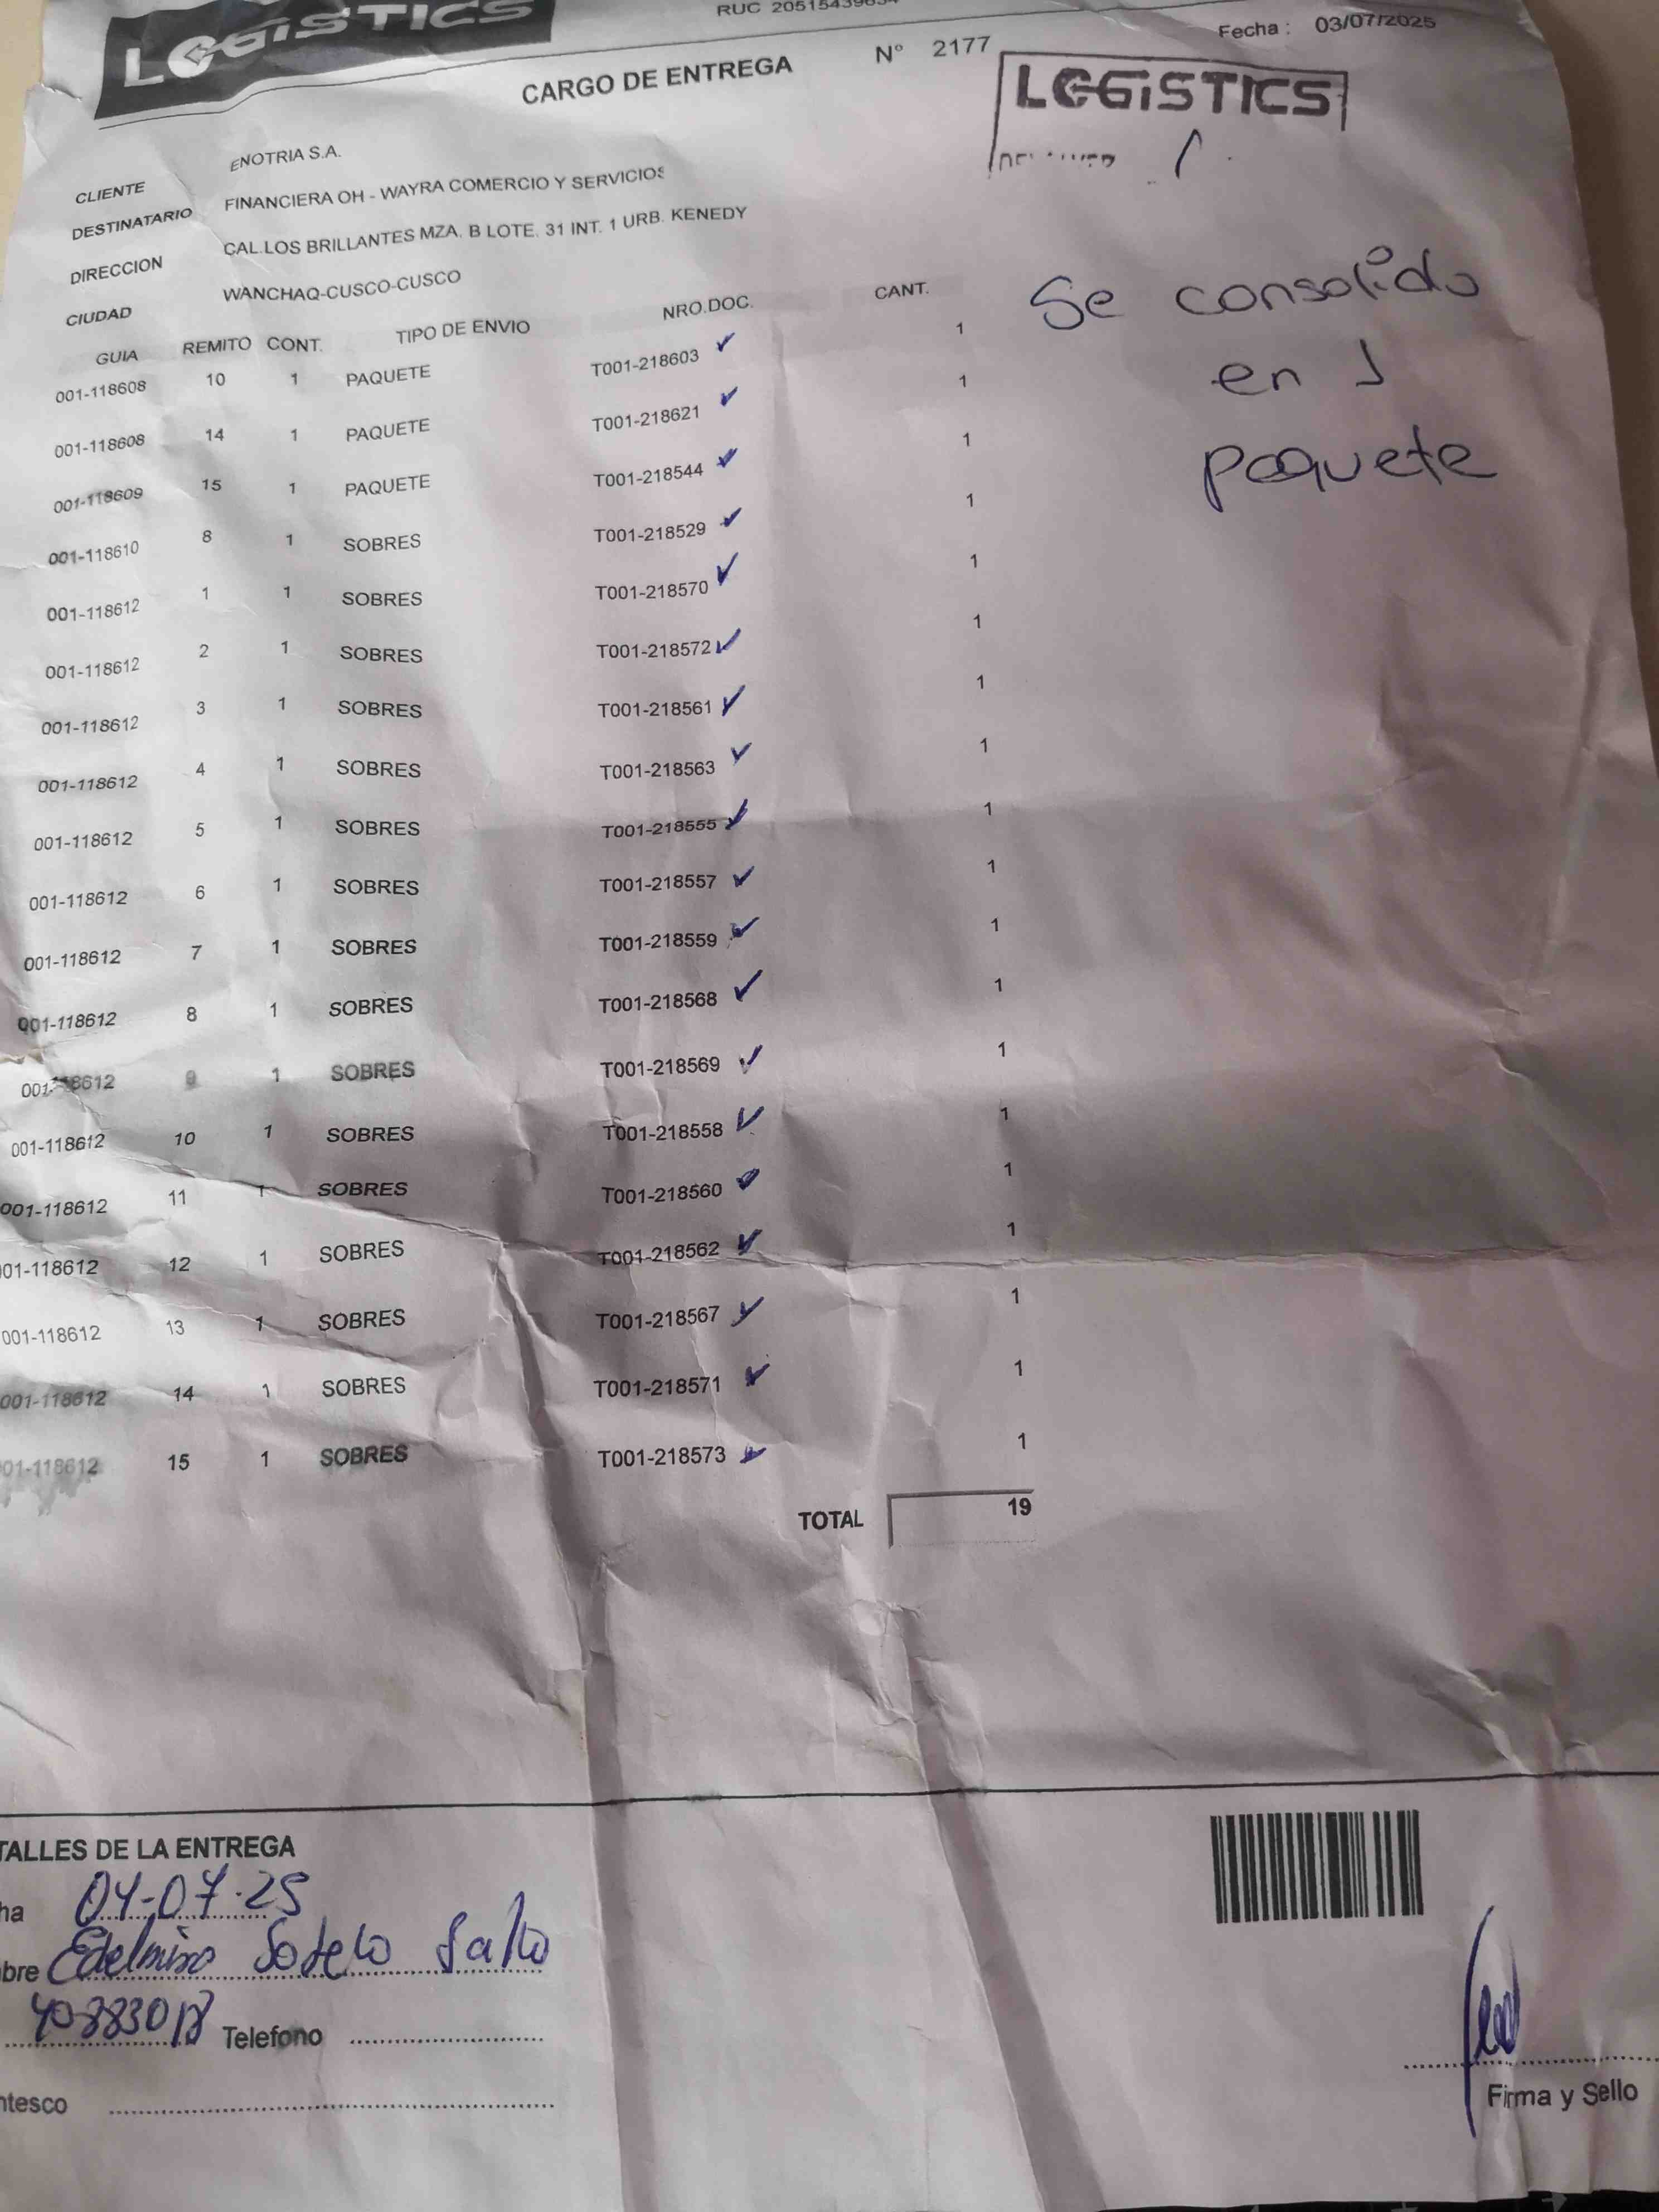 LOGISTICS
CARGO DE ENTREGA N° 2177
Fecha : 03/07/2025
LOGISTICS
CLIENTE ENOTRIA S.A.
DESTINATARIO FINANCIERA OH - WAYRA COMERCIO Y SERVICIOS
DIRECCION CAL.LOS BRILLANTES MZA. B LOTE. 31 INT. 1 URB. KENEDY
CIUDAD WANCHAQ-CUSCO-CUSCO
Se consolido
en 1
paquete
GUIA REMITO CONT. TIPO DE ENVIO NRO.DOC. CANT.
001-118608 10 1 PAQUETE T001-218603 1
001-118608 14 1 PAQUETE T001-218621 1
001-118609 15 1 PAQUETE T001-218544 1
001-118610 8 1 SOBRES T001-218529 1
001-118612 1 1 SOBRES T001-218570 1
001-118612 2 1 SOBRES T001-218572 1
001-118612 3 1 SOBRES T001-218561 1
001-118612 4 1 SOBRES T001-218563 1
001-118612 5 1 SOBRES T001-218555 1
001-118612 6 1 SOBRES T001-218557 1
001-118612 7 1 SOBRES T001-218559 1
001-118612 8 1 SOBRES T001-218568 1
9 1 SOBRES T001-218569 1
001-118612 10 1 SOBRES T001-218558 1
001-118612 11 1 SOBRES T001-218560 1
01-118612 12 1 SOBRES T001-218562 1
001-118612 13 1 SOBRES T001-218567 1
001-118612 14 1 SOBRES T001-218571 1
01-118612 15 1 SOBRES T001-218573 1
TOTAL 19
TALLES DE LA ENTREGA
ha 04-07-25
bre Edelmira Sotelo
Telefono
ntesco
Firma y Sello